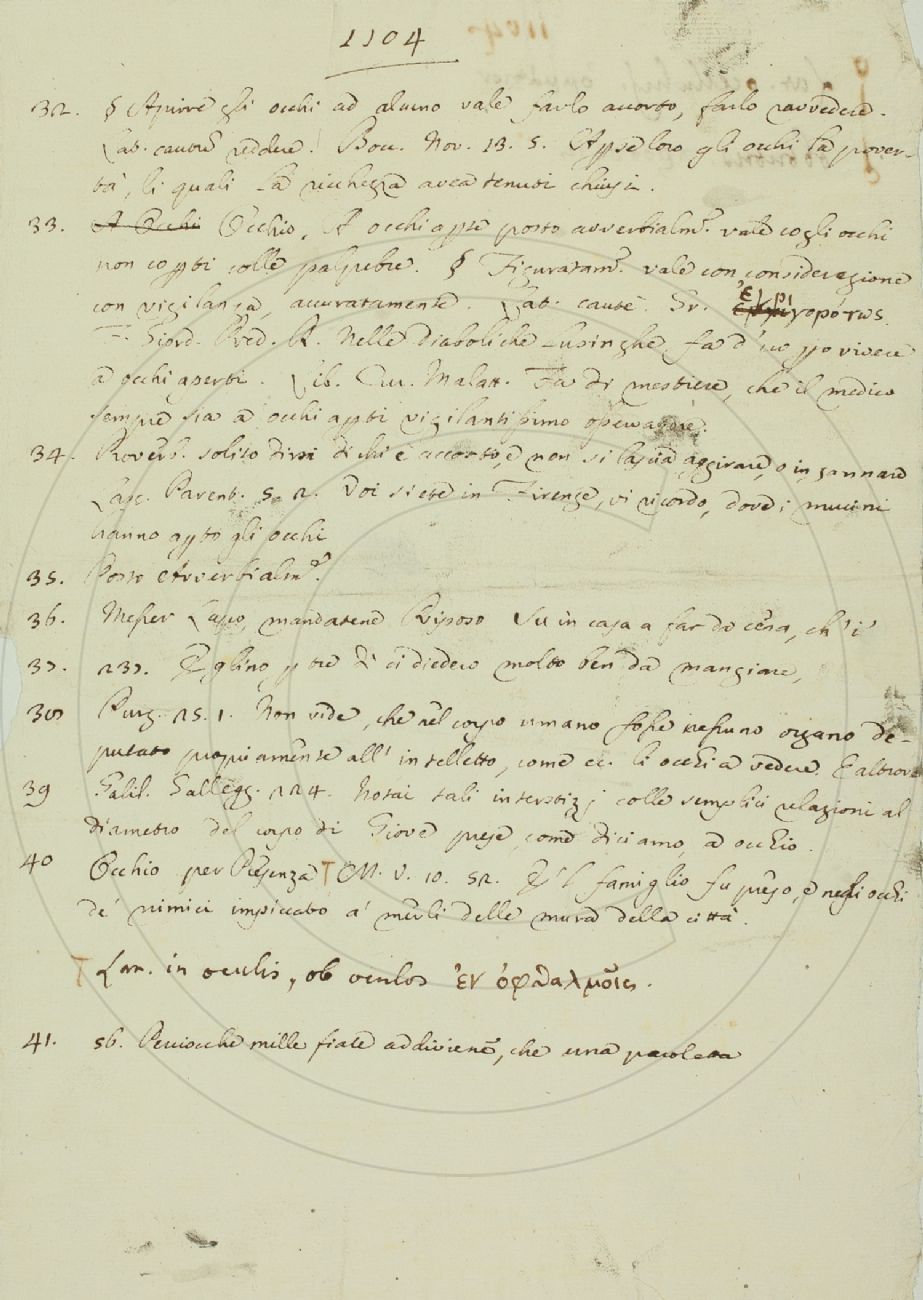 1104
32. § Aprire gli occhi ad alcuno vale farlo accorto, farlo ravvedere.
Lat. cautum reddere. Bocc. Nov. 13. 5. Aperse loro gli occhi la pover-
tà, li quali la ricchezza avea tenuti chiusi.
33. A Occhi Occhio, A occhi aperti posto avverbialm.e vale cogli occhi
non coperti colle palpebre. § Figuratam.e vale con considerazione
con vigilanza, accuratamente. Lat. caute. Gr. ἐγρηγορότως.
F. Giord. Pred. R. Nelle diaboliche lusinghe fa d'uopo vivere
a occhi aperti. Lib. Cur. Malatt. Fa di mestiere, che il medico
sempre sia a occhi aperti vigilantissimo
34. Proverb. solito dirsi di chi è accorto, e non si lascia aggirare, o ingannare
Lasc. Parent. 5. 2. Voi siete in Firenze, vi ricordo, dove i mucini
hanno aperto gli occhi
35. Posto Avverbialm.e
36. Messer Lapo, mandatene Riposo su in casa a far da cena, ch'i'
37. 237. Eglino, per tre dì ci diedero molto ben da mangiare,
38 Purg. 25. 1. Non vide, che nel corpo umano fosse nessuno organo de-
putato propriamente all'intelletto, come ec. li occhi a vedere. E altrove
39 Galil. Gallegg. 224. Notai tali interstizj colle semplici relazioni al
diametro del corpo di Giove prese, come diciamo, a occhio.
40 Occhio per Presenza † M. V. 10. 52. E 'l famiglio fu preso, e negli occhi
de' nimici impiccato a' merli delle mura della città.
† Lat. in oculis, ob oculos ἐν ὀφθαλμοῖς.
41. 56. Perciocchè mille fiate addiviene, che una paroletta